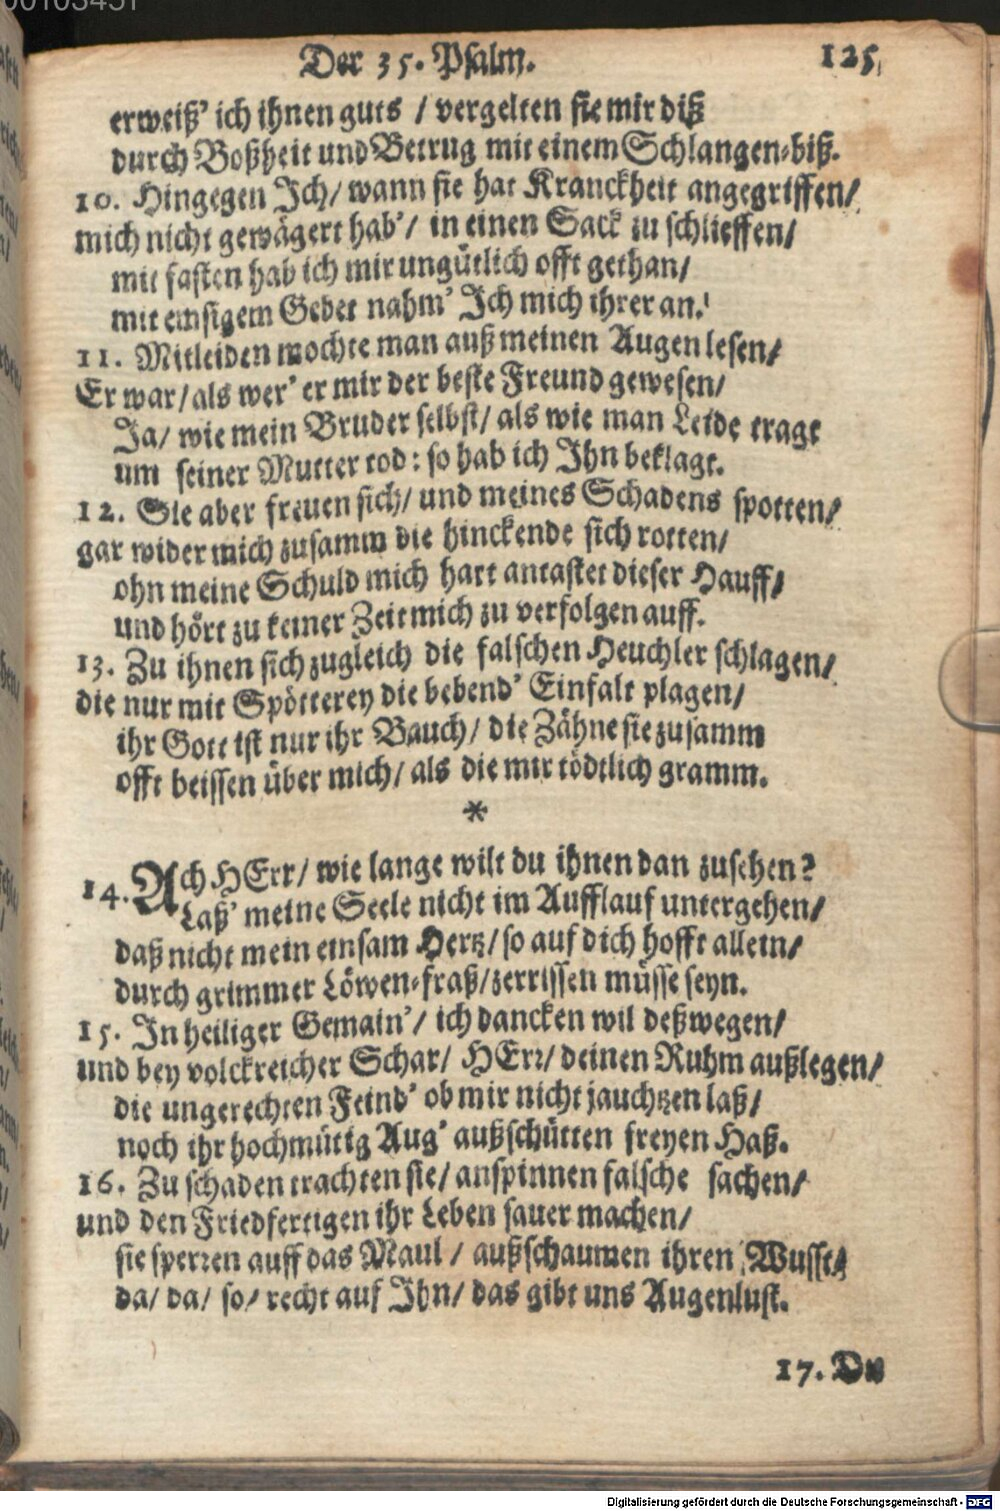 Der 35. Psalm. 125
erweiß' ich ihnen guts / vergelten sie mir diß
durch Boßheit und Betrug mit einem Schlangen-biß.
10. Hingegen Ich/ wann sie hat Kranckheit angegriffen/
mich nicht gewägert hab'/ in einen Sack zu schlieffen/
mit fasten hab ich mir ungütlich offt gethan/
mit emsigem Gebet nahm' Ich mich ihrer an.
11. Mitleiden mochte man auß meinen Augen lesen/
Er war/ als wer' er mir der beste Freund gewesen/
Ja/ wie mein Bruder selbst/ als wie man Leide tragt
um seiner Mutter tod: so hab ich Ihn beklagt.
12. Sie aber freuen sich/ und meines Schadens spotten/
gar wider mich zusamm die hinckende sich rotten/
ohn meine Schuld mich hart antastet dieser Hauff/
und hört zu keiner Zeit mich zu verfolgen auff.
13. Zu ihnen sich zugleich die falschen Heuchler schlagen/
die nur mit Spötterey die bebend' Einfalt plagen/
ihr Gott ist nur ihr Bauch/ die Zähne sie zusamm
offt beissen über mich/ als die mir tödtlich gramm.
*
14. Ach HErr/ wie lange wilt du ihnen dan zusehen?
Laß' meine Seele nicht im Aufflauf untergehen/
daß nicht mein einsam Hertz/ so auf dich hofft allein/
durch grimmer Löwen-fraß/ zerrissen müsse seyn.
15. In heiliger Gemain'/ ich dancken wil deßwegen/
und bey volckreicher Schar/ HErr/ deinen Ruhm außlegen/
die ungerechten Feind' ob mir nicht jauchtzen laß/
noch ihr hochmütig Aug' außschütten freyen Haß.
16. Zu schaden trachten sie/ anspinnen falsche sachen/
und den Friedfertigen ihr Leben sauer machen/
sie sperren auff das Maul / außschaumen ihren Wust/
da/ da/ so/ recht auf Ihn/ das gibt uns Augenlust.
17. Du
Digitalisierung gefördert durch die Deutsche Forschungsgemeinschaft - DFG